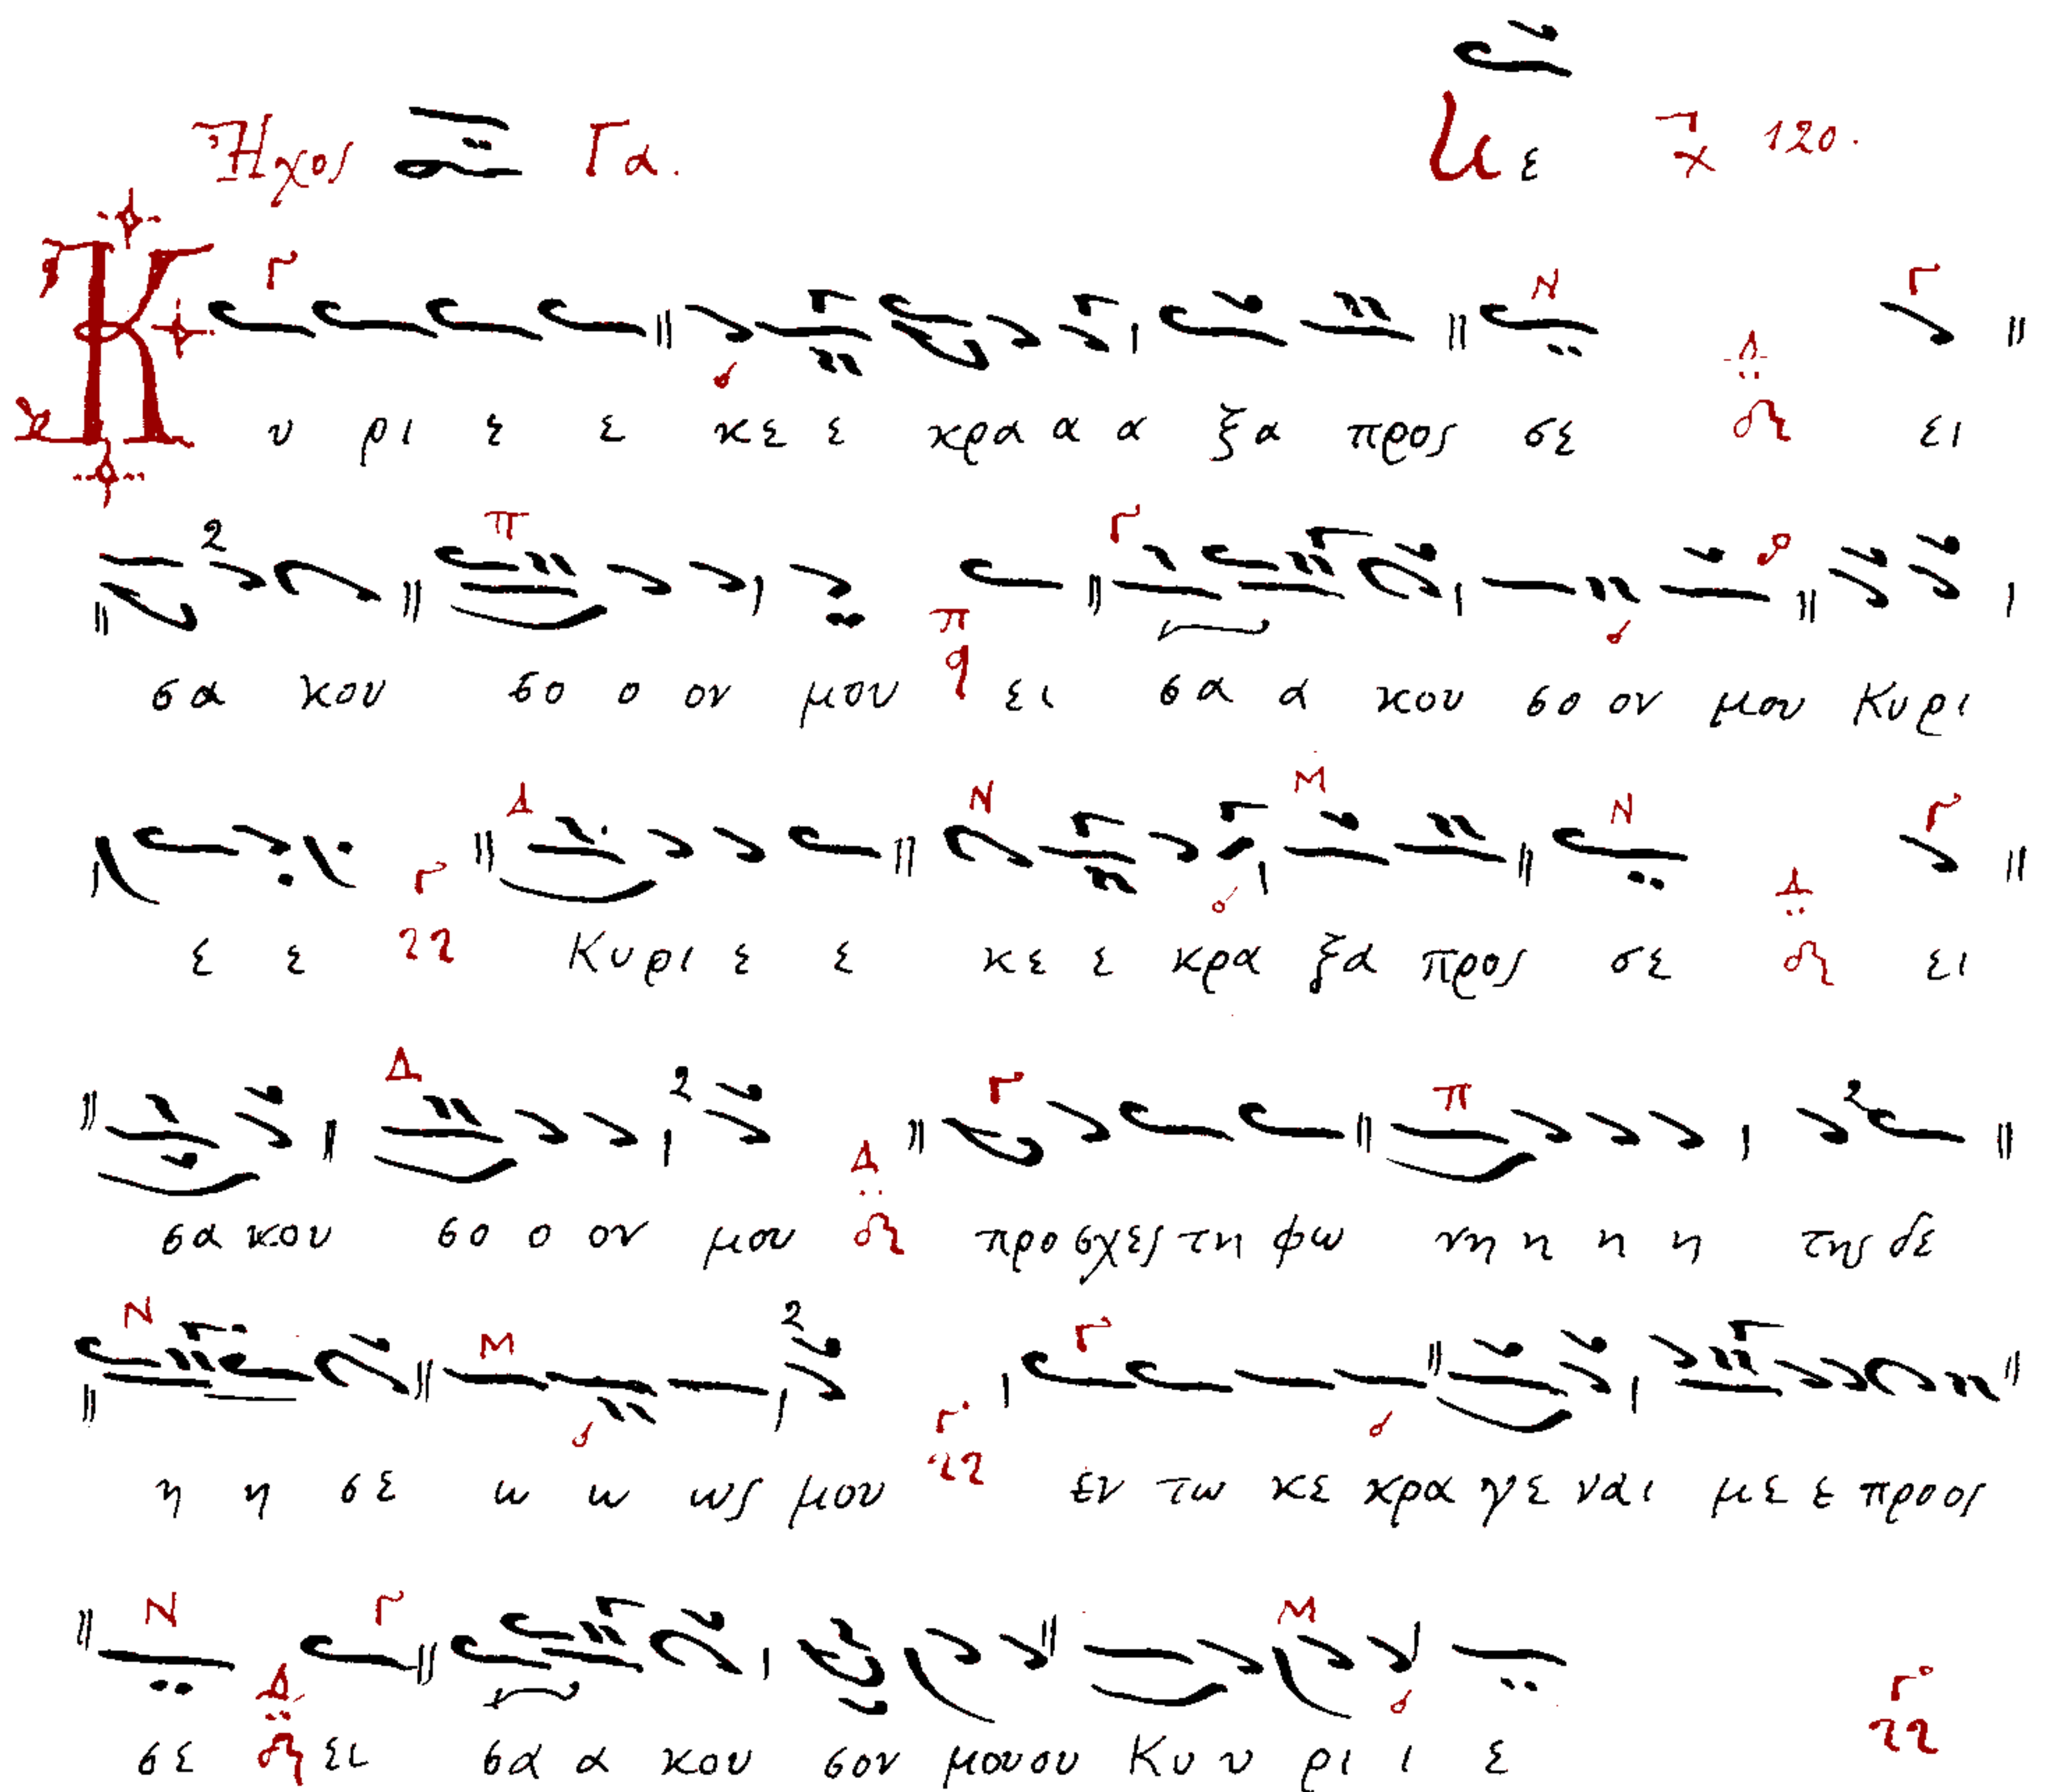 Ἦχος Γα. ε χ 120.
Κ υ ρι ε ε κε ε κρα α α ξα προς σε Δ ει
σα κου σο ο ον μου π q ει σα α κου σο ον μου Κυρι
ε ε Γ Κυρι ε ε κε ε κρα ξα προς σε Δ ει
σα κου σο ο ον μου Δ προ σχες τη φω νη η η η της δε
η η σε ω ω ως μου Γ εν τω κε κρα γε ναι με ε προος
σε Δ ει σα α κου σον μουου Κυ υ ρι ι ε Γ